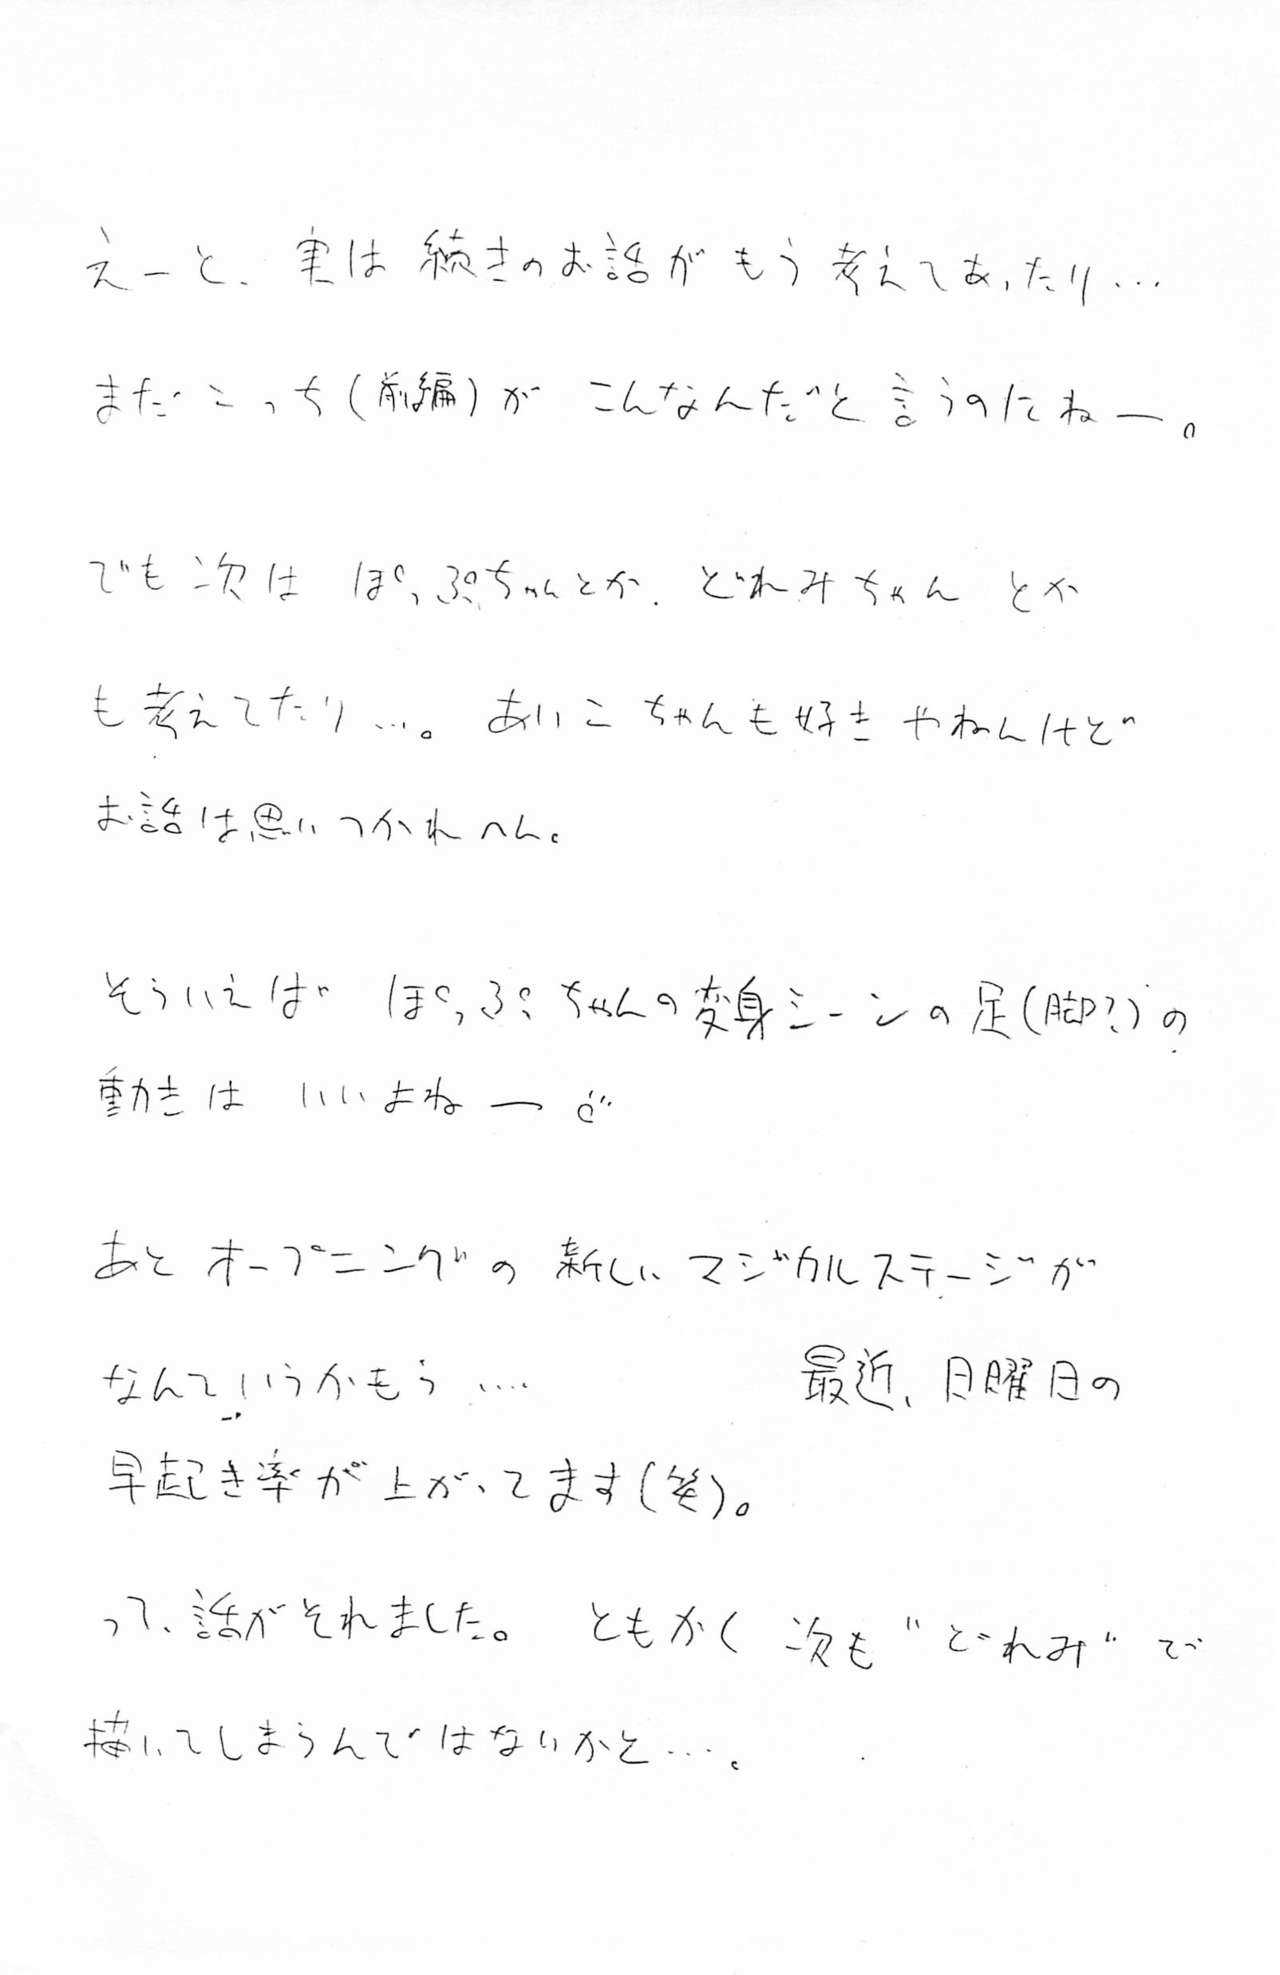 えーと、実は続きのお話がもう考えてあったり…
まだこっち(前編)がこんなんだと言うのにねー。
でも次はぽっぷちゃんとか、どれみちゃんとか
も考えてたり…。あいこちゃんも好きやねんけど
お話は思いつかれへん。
そういえばぽっぷちゃんの変身シーンの足(脚?)の
動きはいいよねー
あとオープニングの新しいマジカルステージが
なんていうかもう…. 最近、日曜日の
早起き率が上がってます(笑)。
って、話がそれました。ともかく次も"どれみ"で
描いてしまうんではないかと…。